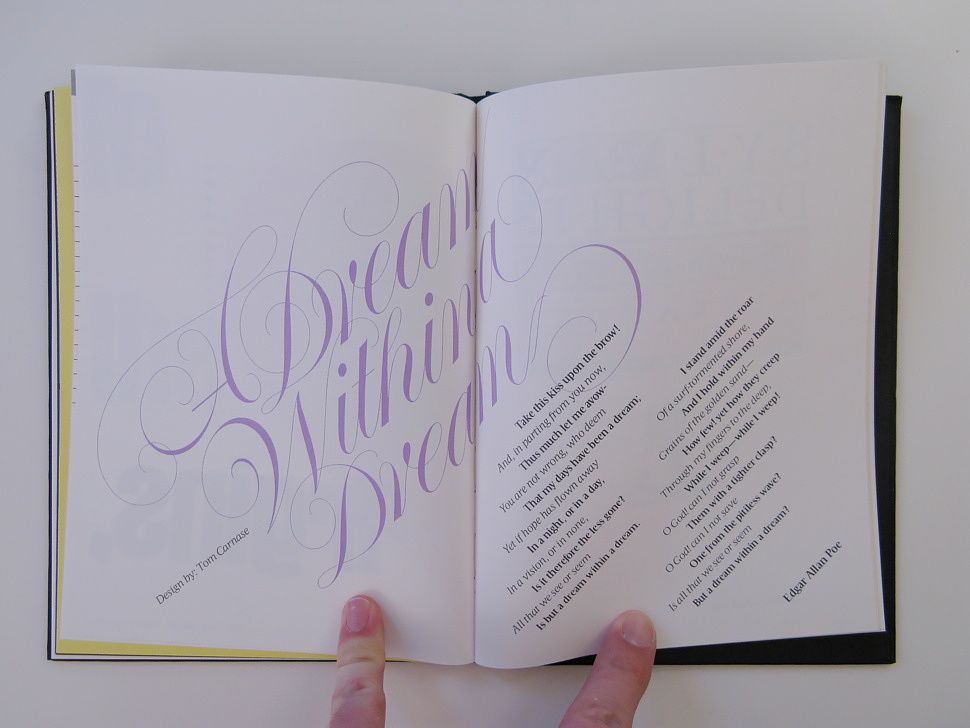 A Dream
Within a
Dream
Design by: Tom Carnase
Take this kiss upon the brow!
And, in parting from you now,
Thus much let me avow-
You are not wrong, who deem
That my days have been a dream;
Yet if hope has flown away
In a night, or in a day,
In a vision, or in none,
Is it therefore the less gone?
All that we see or seem
Is but a dream within a dream.
I stand amid the roar
Of a surf-tormented shore,
And I hold within my hand
Grains of the golden sand—
How few! yet how they creep
Through my fingers to the deep,
While I weep—while I weep!
O God! can I not grasp
Them with a tighter clasp?
O God! can I not save
One from the pitiless wave?
Is all that we see or seem
But a dream within a dream?
Edgar Allan Poe